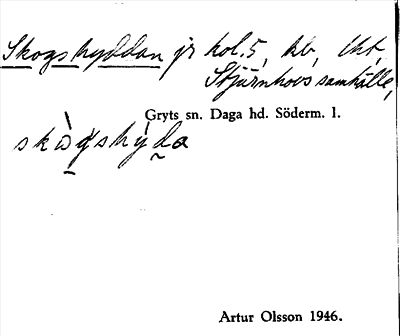 Skogshyddan jr kol. 5, hb, lht,
Stjärnhovs samhälle,
Gryts sn. Daga hd. Söderm. l.
skògshýda
Artur Olsson 1946.